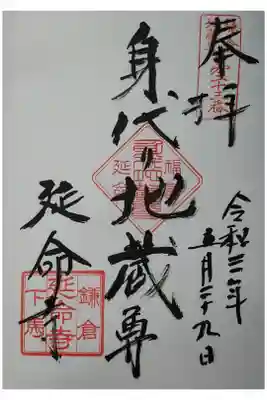 奉拝
令和三年
五月二十九日
身代り地蔵尊
延命寺
鎌倉
延命寺
下馬